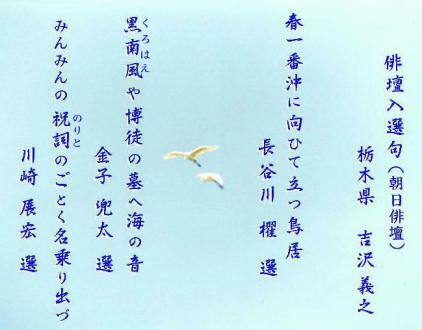 俳壇入選句(朝日俳壇)
栃木県 吉沢義之
春一番沖に向ひて立つ鳥居
長谷川 櫂 選
黒南風や博徒の墓へ海の音
くろはえ
金子 兜太 選
みんみんの祝詞のごとく名乗り出づ
のりと
川崎 展宏 選